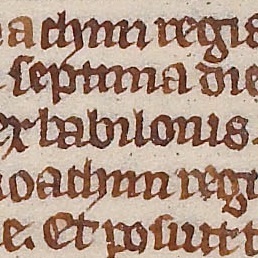 achim regis
septima die
ex babilonis
ioachim regi
e. Et posuit